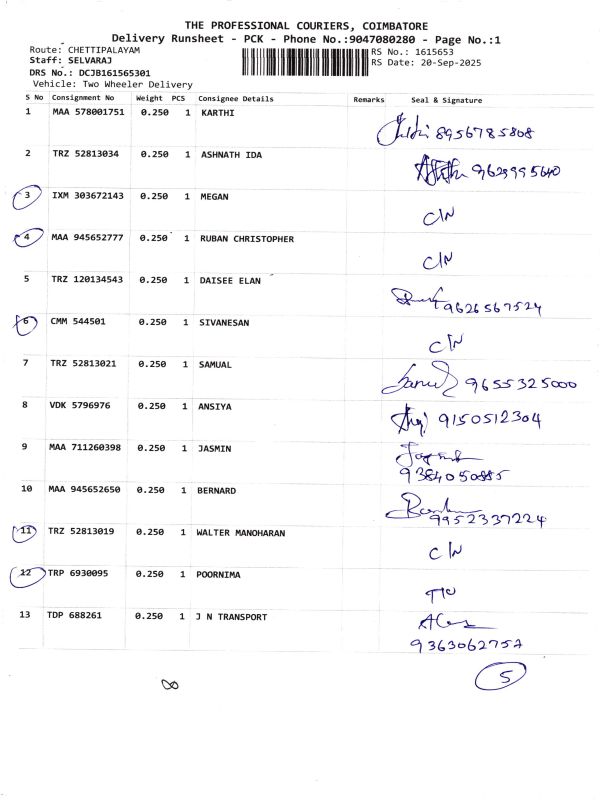 THE PROFESSIONAL COURIERS, COIMBATORE
Delivery Runsheet - PCK - Phone No.:9047080280 - Page No.:1
Route: CHETTIPALAYAM RS No.: 1615653
Staff: SELVARAJ RS Date: 20-Sep-2025
DRS No.: DCJB161565301
Vehicle: Two Wheeler Delivery
S No Consignment No Weight PCS Consignee Details Remarks Seal & Signature
1 MAA 578001751 0.250 1 KARTHI 8956785808
2 TRZ 52813034 0.250 1 ASHNATH IDA 9629995640
3 IXM 303672143 0.250 1 MEGAN C/N
4 MAA 945652777 0.250 1 RUBAN CHRISTOPHER C/N
5 TRZ 120134543 0.250 1 DAISEE ELAN 9626567524
6 CMM 544501 0.250 1 SIVANESAN C/N
7 TRZ 52813021 0.250 1 SAMUAL 9655325000
8 VDK 5796976 0.250 1 ANSIYA 9150512304
9 MAA 711260398 0.250 1 JASMIN
9384050885
10 MAA 945652650 0.250 1 BERNARD
9952337224
11 TRZ 52813019 0.250 1 WALTER MANOHARAN C/N
12 TRP 6930095 0.250 1 POORNIMA
13 TDP 688261 0.250 1 J N TRANSPORT
9363062752
8 5